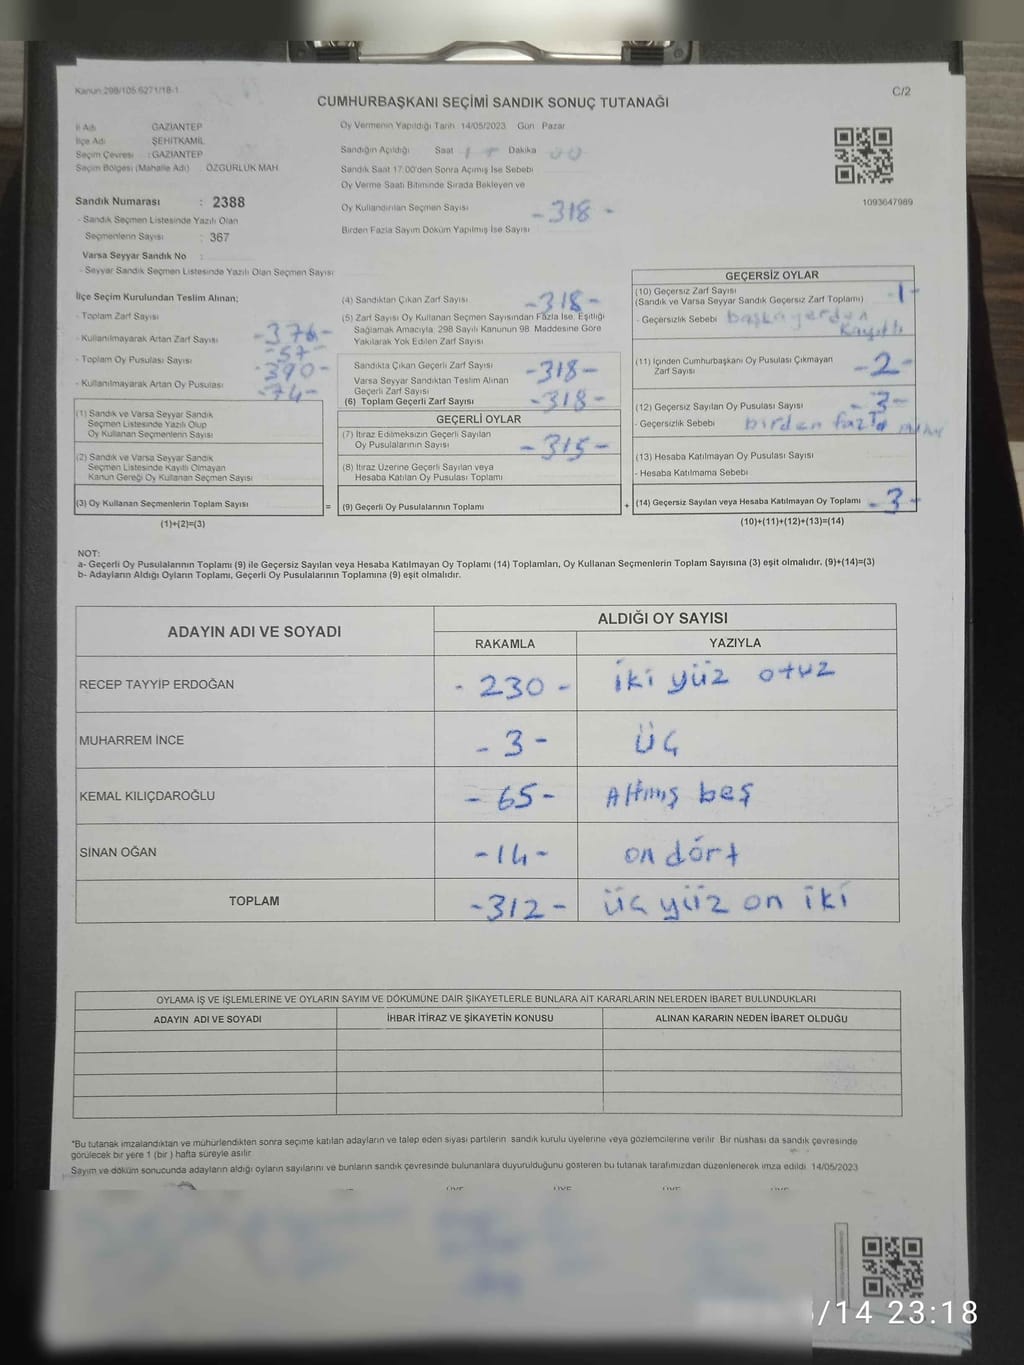 Kanun 298/105 6271/18-1
C/2
CUMHURBAŞKANI SEÇİMİ SANDIK SONUÇ TUTANAĞI
İl Adı GAZİANTEP
İlçe Adı ŞEHİTKAMİL
Seçim Çevresi : GAZİANTEP
Seçim Bölgesi (Mahalle Adı) ÖZGÜRLÜK MAH.
Sandık Numarası : 2388
- Sandık Seçmen Listesinde Yazılı Olan
Seçmenlerin Sayısı : 367
Varsa Seyyar Sandık No :
- Seyyar Sandık Seçmen Listesinde Yazılı Olan Seçmen Sayısı
Oy Vermenin Yapıldığı Tarih 14/05/2023 Gün Pazar
Sandığın Açıldığı Saat Dakika 00
Sandık Saat 17.00'den Sonra Açılmış İse Sebebi
Oy Verme Saati Bitiminde Sırada Bekleyen ve
Oy Kullandırılan Seçmen Sayısı -318-
Birden Fazla Sayım Döküm Yapılmış İse Sayısı
1093647989
İlçe Seçim Kurulundan Teslim Alınan;
- Toplam Zarf Sayısı -376-
- Kullanılmayarak Artan Zarf Sayısı -57-
- Toplam Oy Pusulası Sayısı -390-
- Kullanılmayarak Artan Oy Pusulası -74-
(1) Sandık ve Varsa Seyyar Sandık
Seçmen Listesinde Yazılı Olup
Oy Kullanan Seçmenlerin Sayısı
(2) Sandık ve Varsa Seyyar Sandık
Seçmen Listesinde Kayıtlı Olmayan
Kanun Gereği Oy Kullanan Seçmen Sayısı
(3) Oy Kullanan Seçmenlerin Toplam Sayısı
=
(1)+(2)=(3)
(4) Sandıktan Çıkan Zarf Sayısı -318-
(5) Zarf Sayısı Oy Kullanan Seçmen Sayısından Fazla İse, Eşitliği
Sağlamak Amacıyla, 298 Sayılı Kanunun 98. Maddesine Göre
Yakılarak Yok Edilen Zarf Sayısı
Sandıkta Çıkan Geçerli Zarf Sayısı -318-
Varsa Seyyar Sandıktan Teslim Alınan
Geçerli Zarf Sayısı
(6) Toplam Geçerli Zarf Sayısı -318-
GEÇERLİ OYLAR
(7) İtiraz Edilmeksizin Geçerli Sayılan
Oy Pusulalarının Sayısı -315-
(8) İtiraz Üzerine Geçerli Sayılan veya
Hesaba Katılan Oy Pusulası Toplamı
(9) Geçerli Oy Pusulalarının Toplamı
+
GEÇERSİZ OYLAR
(10) Geçersiz Zarf Sayısı -1-
(Sandık ve Varsa Seyyar Sandık Geçersiz Zarf Toplamı)
- Geçersizlik Sebebi başkayerden
kayıtlı
(11) İçinden Cumhurbaşkanı Oy Pusulası Çıkmayan
Zarf Sayısı -2-
(12) Geçersiz Sayılan Oy Pusulası Sayısı -3-
- Geçersizlik Sebebi birden fazla
(13) Hesaba Katılmayan Oy Pusulası Sayısı
- Hesaba Katılmama Sebebi
(14) Geçersiz Sayılan veya Hesaba Katılmayan Oy Toplamı -3-
(10)+(11)+(12)+(13)=(14)
NOT:
a- Geçerli Oy Pusulalarının Toplamı (9) ile Geçersiz Sayılan veya Hesaba Katılmayan Oy Toplamı (14) Toplamları, Oy Kullanan Seçmenlerin Toplam Sayısına (3) eşit olmalıdır. (9)+(14)=(3)
b- Adayların Aldığı Oyların Toplamı, Geçerli Oy Pusulalarının Toplamına (9) eşit olmalıdır.
ADAYIN ADI VE SOYADI
ALDIĞI OY SAYISI
RAKAMLA YAZIYLA
RECEP TAYYİP ERDOĞAN -230- iki yüz otuz
MUHARREM İNCE -3- üç
KEMAL KILIÇDAROĞLU -65- Altmış beş
SİNAN OĞAN -14- on dört
TOPLAM -312- üç yüz on iki
OYLAMA İŞ VE İŞLEMLERİNE VE OYLARIN SAYIM VE DÖKÜMÜNE DAİR ŞİKAYETLERLE BUNLARA AİT KARARLARIN NELERDEN İBARET BULUNDUKLARI
ADAYIN ADI VE SOYADI İHBAR İTİRAZ VE ŞİKAYETİN KONUSU ALINAN KARARIN NEDEN İBARET OLDUĞU
*Bu tutanak imzalandıktan ve mühürlendikten sonra seçime katılan adayların ve talep eden siyasi partilerin sandık kurulu üyelerine veya gözlemcilerine verilir. Bir nüshası da sandık çevresinde
görülecek bir yere 1 (bir ) hafta süreyle asılır.
Sayım ve döküm sonucunda adayların aldığı oyların sayılarını ve bunların sandık çevresinde bulunanlara duyurulduğunu gösteren bu tutanak tarafımızdan düzenlenerek imza edildi. 14/05/2023
/14 23:18